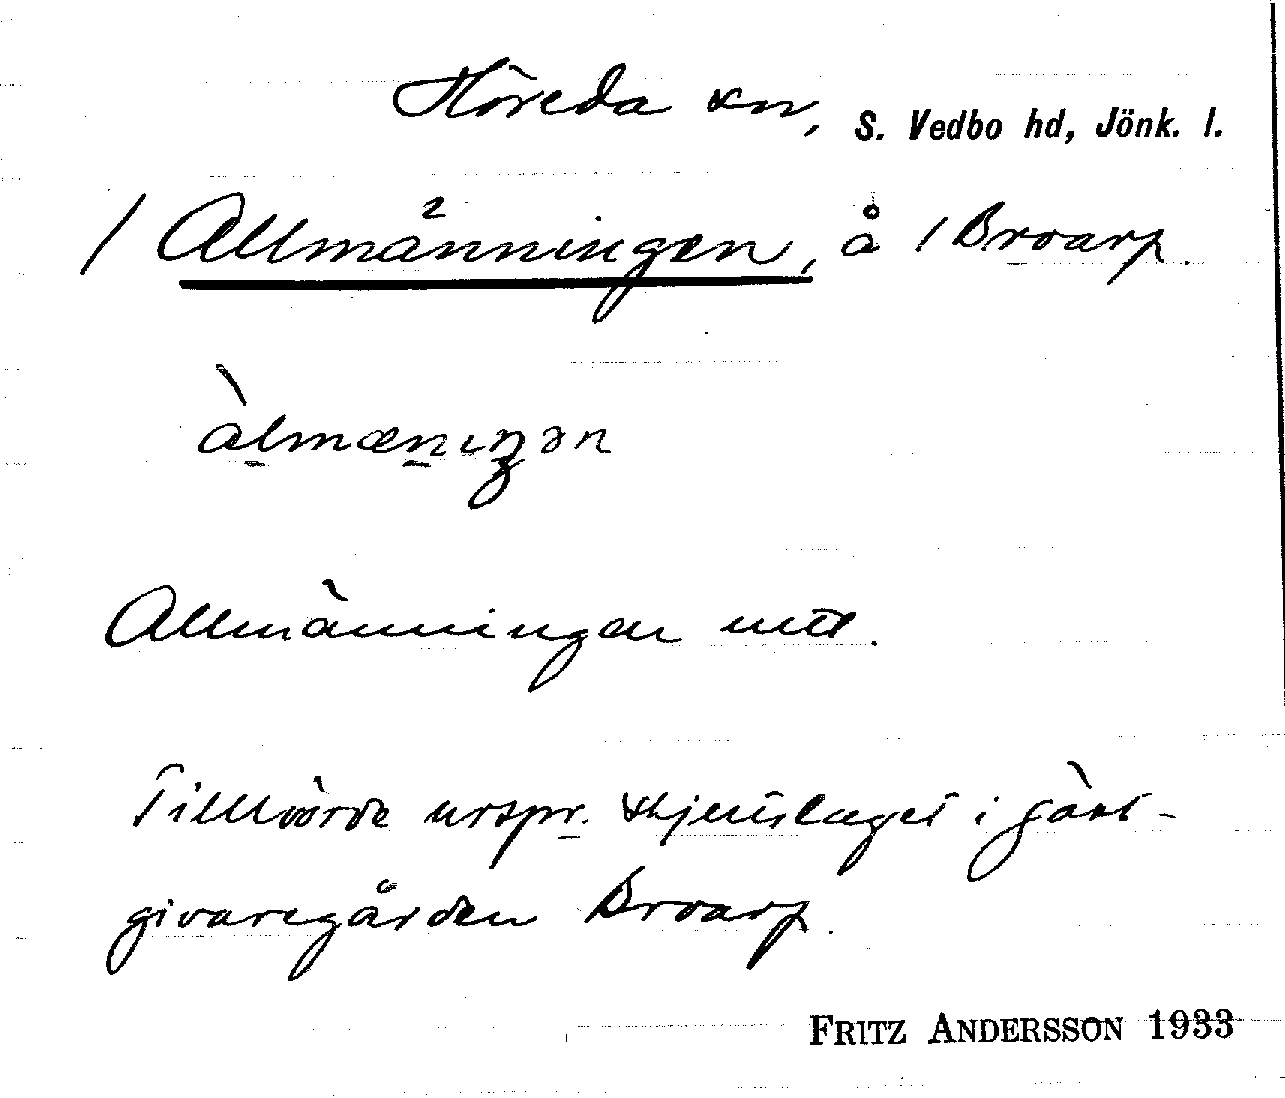 Höreda sn, S. Vedbo hd, Jönk. l.
/ Allmänningen, å / Broarp.
àlmænıŋən
Allmänningen mtl.
Tillhörde urspr. skjutslaget i gäst-
givaregården Broarp.
FRITZ ANDERSSON 1933